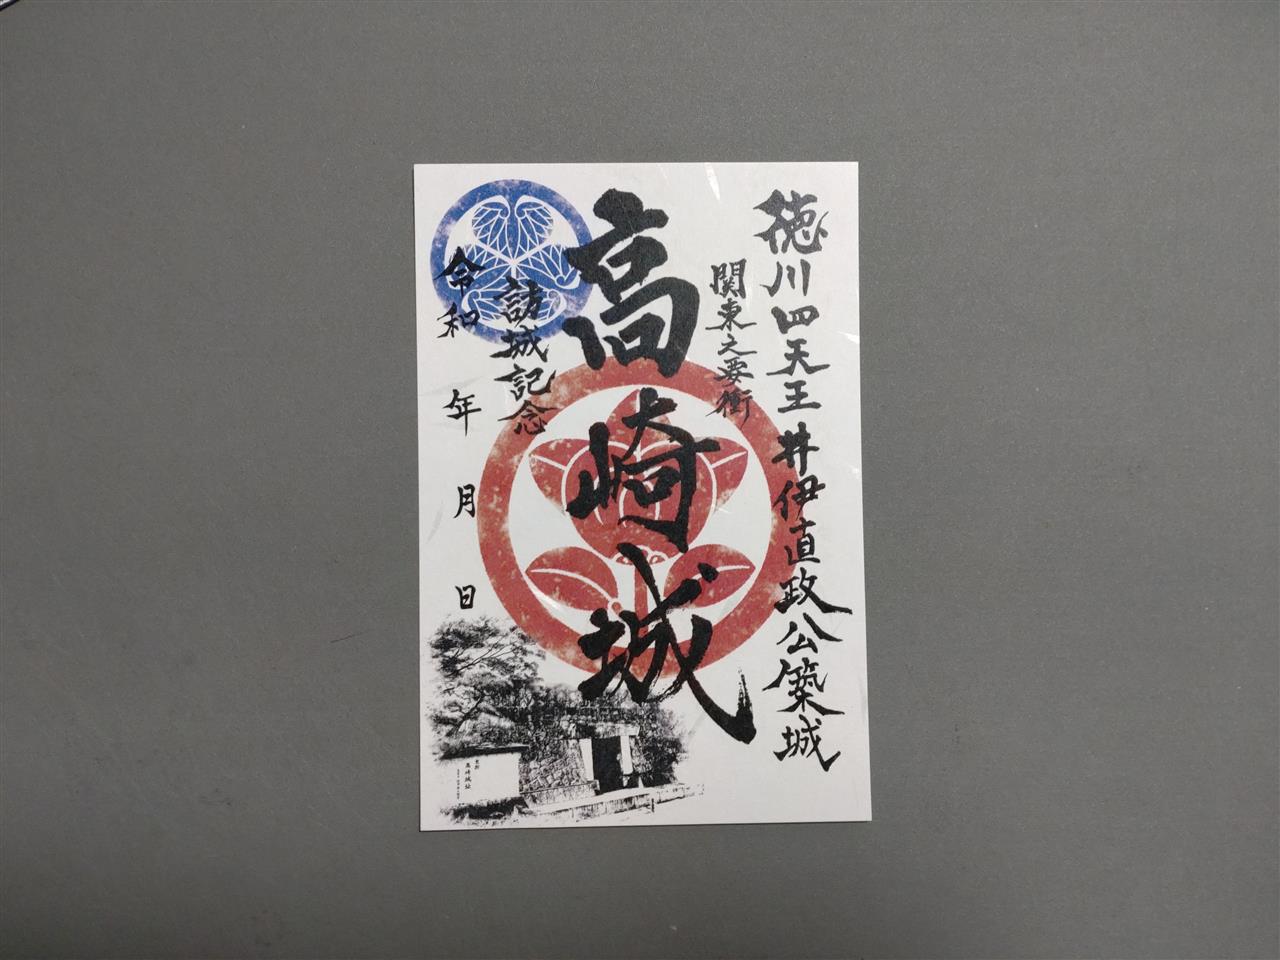 徳川四天王 井伊直政公築城
関東之要衝
高崎城
訪城記念
令和 年 月 日
高崎城址